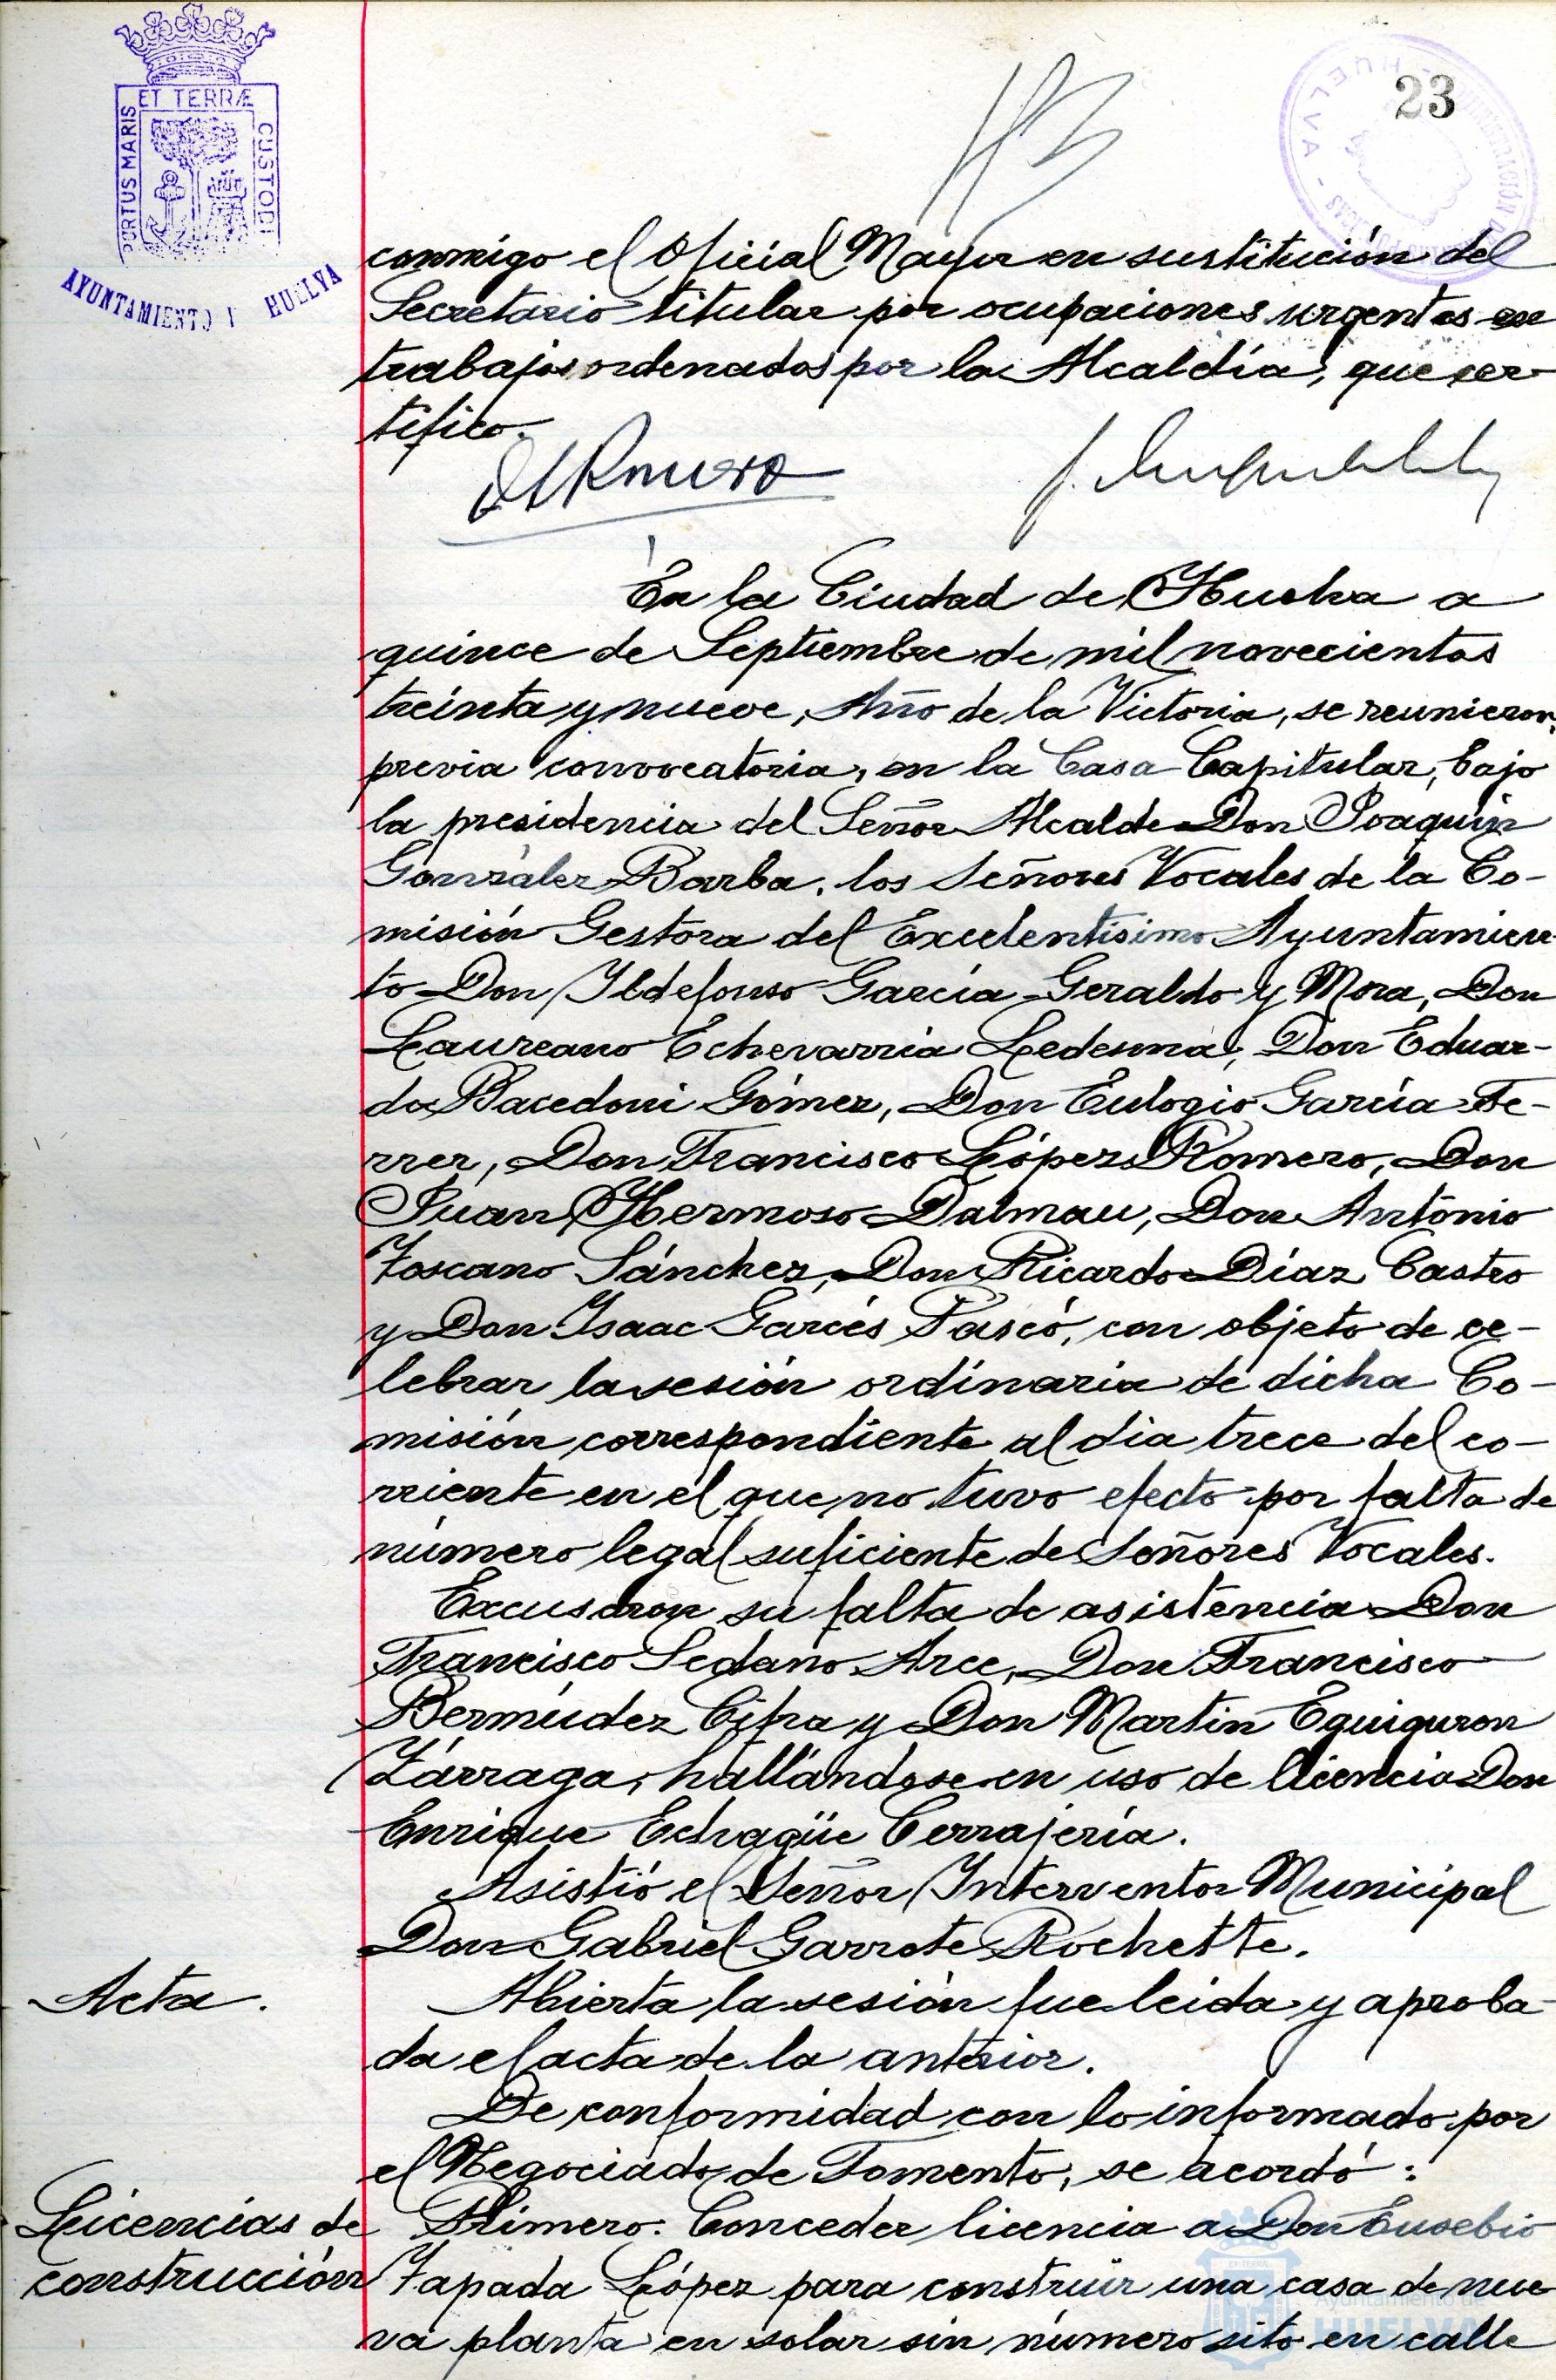 ET TERRÆ
PORTUS MARIS
CUSTODI
AYUNTAMIENTO HUELVA
23
HUELVA
conmigo el Oficial Mayor en sustitución del
Secretario titular por ocupaciones urgentes en
trabajos ordenados por la Alcaldía, que cer-
tifico.
En la Ciudad de Huelva a
quince de Septiembre de mil novecientos
treinta y nueve, Año de la Victoria, se reunieron,
previa convocatoria, en la Casa Capitular, bajo
la presidencia del Señor Alcalde Don Joaquín
González Barba, los Señores Vocales de la Co-
misión Gestora del Excelentísimo Ayuntamien-
to Don Ildefonso García Geraldo y Mora, Don
Laureano Echevarría Ledesma, Don Eduar-
do Bacedoni Gómez, Don Eulogio García Fe-
rrer, Don Francisco López Romero, Don
Juan Hermoso Dalmau, Don Antonio
Toscano Sánchez, Don Ricardo Díaz Castro
y Don Isaac Garcés Pascó, con objeto de ce-
lebrar la sesión ordinaria de dicha Co-
misión correspondiente al dia trece del co-
rriente en el que no tuvo efecto por falta de
número legal suficiente de Señores Vocales.
Excusaron su falta de asistencia Don
Francisco Sedano Arce, Don Francisco
Bermúdez Cifra y Don Martin Eguiguron
Zárraga, hallándose en uso de licencia Don
Enrique Echagüe Cerrajería.
Asistió el Señor Interventor Municipal
Don Gabriel Garrote Rochette.
Acta. Abierta la sesión fue leida y aproba-
da el acta de la anterior.
De conformidad con lo informado por
el Negociado de Fomento, se acordó:
Licencias de Primero: Conceder licencia a Don Eusebio
construcción Zapada López para construir una casa de nue-
va planta en solar sin número sito en calle
Ayuntamiento de
HUELVA